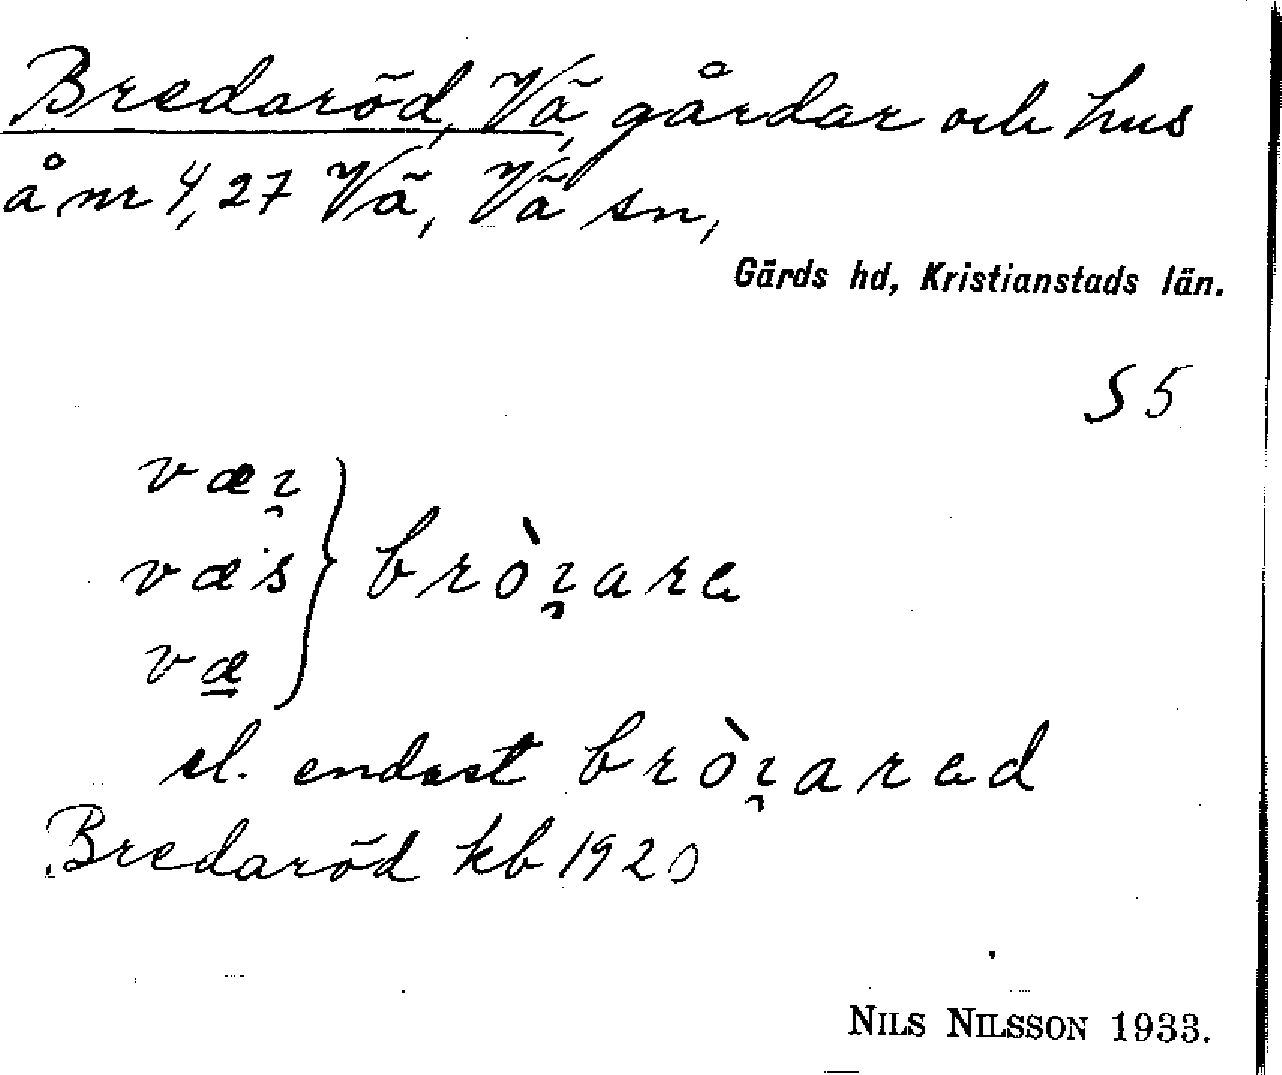 Bredaröd, Vä, gårdar och hus
å nr 4, 27 Vä, Vä sn,
Gärds hd, Kristianstads län.
S 5
væı̯
væs } bròı̯ara
væ
el. endast bròı̯arad
Bredaröd kb 1920
NILS NILSSON 1933.